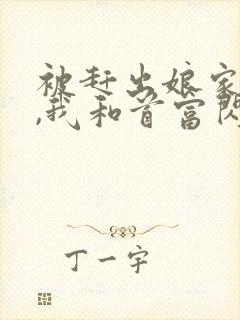 被赶出娘家
,我和首富闪
丁一宇